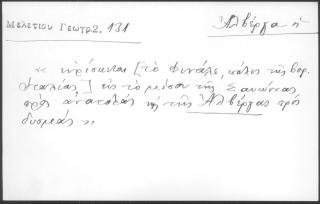 Μελετίου Γεωγρ. 131
Ἀλβέργα ἡ
« εὑρίσκεται [τὸ Φινάλε, πόλις τῆς βορ.
Ἰταλίας] εἰς τὸ μέσον τῆς Σαυώνας
πρὸς ἀνατολὰς καὶ τῆς Ἀλβέργας πρὸς
δυσμὰς »